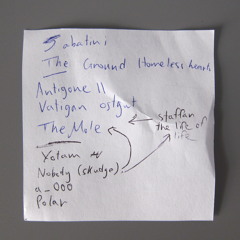 Sabatini
The Ground Homeless hearts
Antigone II
Vatigan ostgut
The Mole
staffan
the life of
life
Xotam
Nobody (skudge)
a_000
Polar